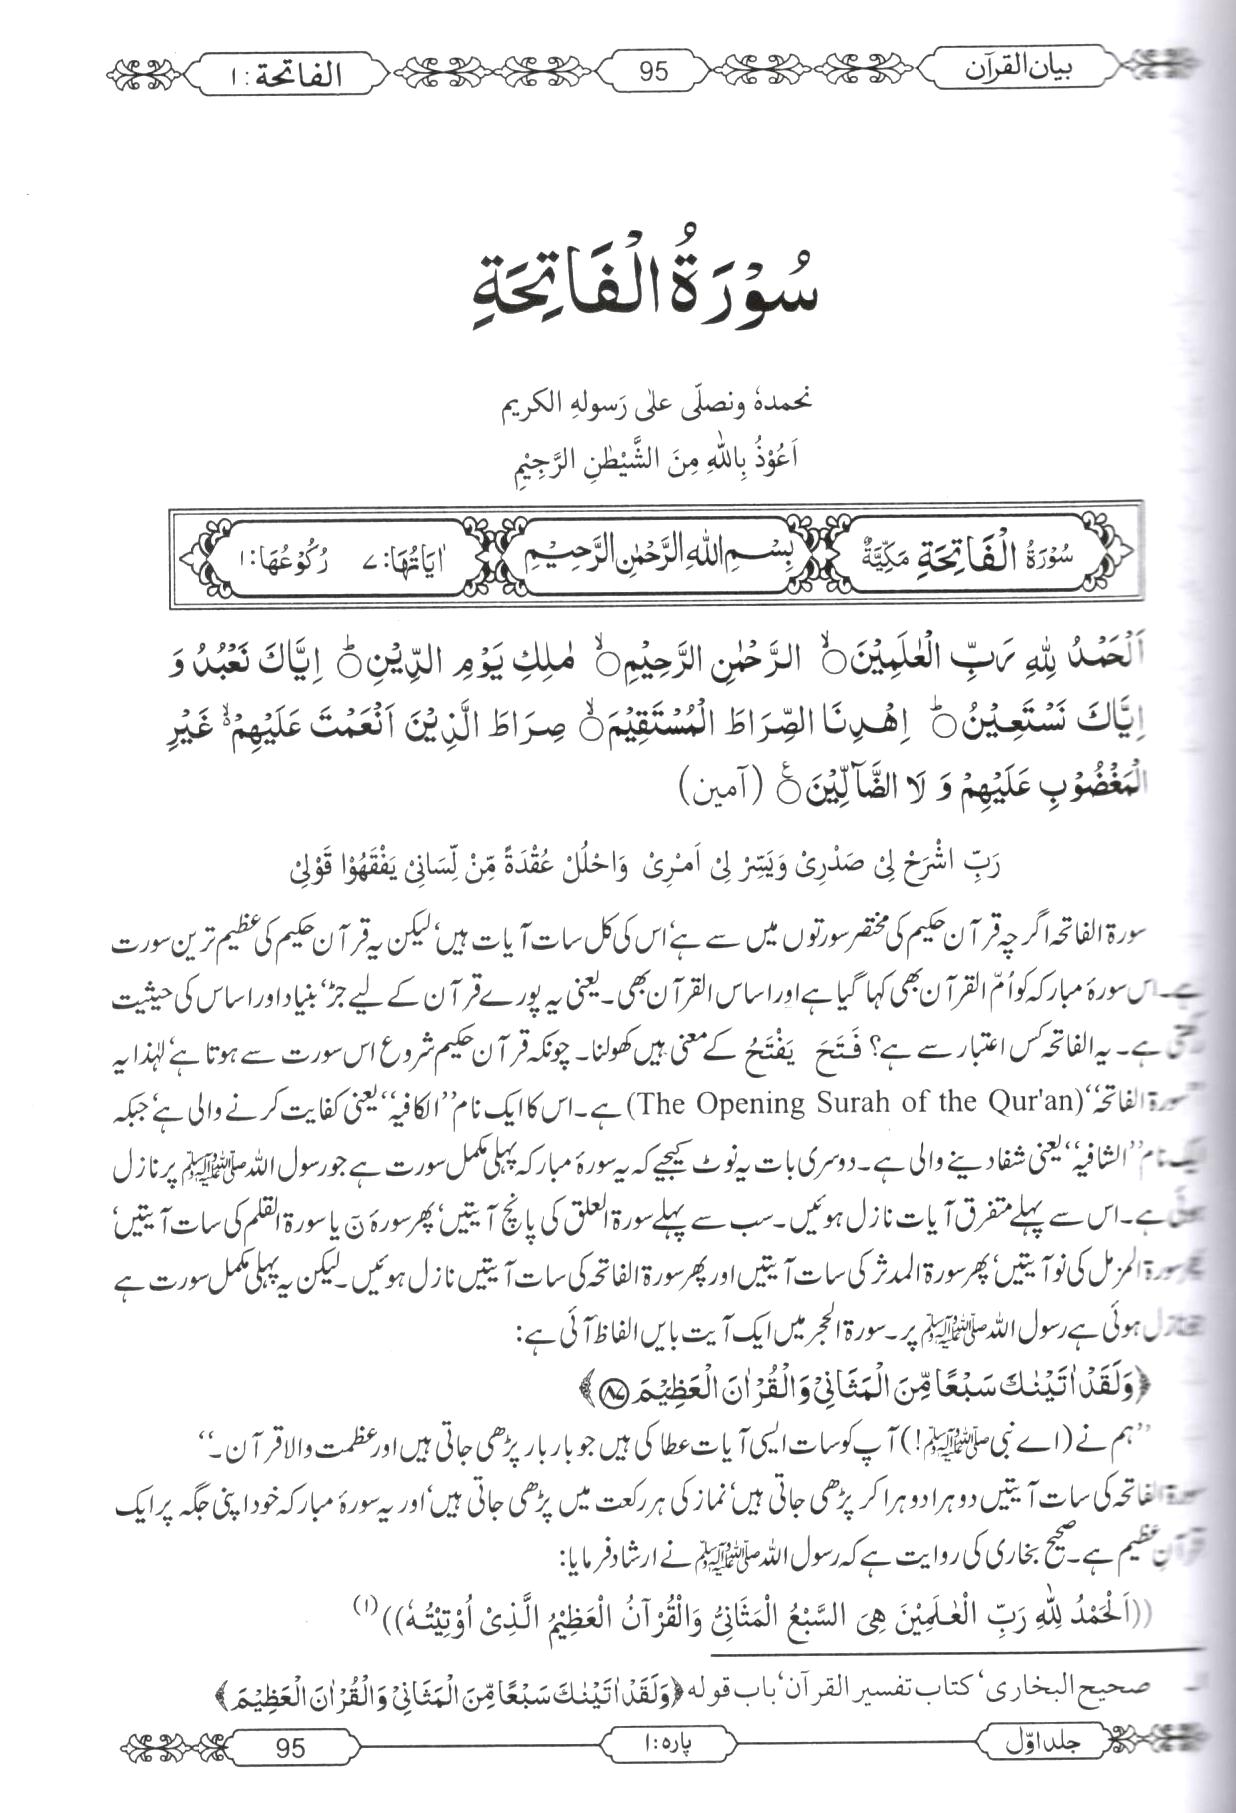 بیان القرآن 95 الفاتحة : ۱
سُوْرَةُ الْفَاتِحَةِ
نحمدہٗ ونصلّی علیٰ رَسولہِ الکریم
اَعُوْذُ بِاللّٰہِ مِنَ الشَّیْطٰنِ الرَّجِیْمِ
سُوْرَةُ الْفَاتِحَةِ مَکِّیَّةٌ بِسْمِ اللهِ الرَّحْمٰنِ الرَّحِیْمِ اٰیَاتُهَا: ۷ رُکُوْعُهَا: ۱
اَلْحَمْدُ لِلّٰہِ رَبِّ الْعٰلَمِیْنَ ۙ الرَّحْمٰنِ الرَّحِیْمِ ۙ مٰلِكِ یَوْمِ الدِّیْنِ ؕ اِیَّاكَ نَعْبُدُ وَ
اِیَّاكَ نَسْتَعِیْنُ ؕ اِھْدِنَا الصِّرَاطَ الْمُسْتَقِیْمَ ۙ صِرَاطَ الَّذِیْنَ اَنْعَمْتَ عَلَیْهِمْ ۙ۬ غَیْرِ
الْمَغْضُوْبِ عَلَیْهِمْ وَ لَا الضَّآلِّیْنَ ۧ (آمین)
رَبِّ اشْرَحْ لِیْ صَدْرِیْ وَیَسِّرْ لِیْ اَمْرِیْ وَاحْلُلْ عُقْدَةً مِّنْ لِّسَانِیْ یَفْقَھُوْا قَوْلِیْ
سورۃ الفاتحہ اگرچہ قرآن حکیم کی مختصر سورتوں میں سے ہے‘ اس کی کل سات آیات ہیں‘ لیکن یہ قرآن حکیم کی عظیم ترین سورت
ہے۔ اس سورۂ مبارکہ کو اُمّ القرآن بھی کہا گیا ہے اور اساس القرآن بھی۔ یعنی یہ پورے قرآن کے لیے جڑ‘ بنیاد اور اساس کی حیثیت
رکھتی ہے۔ یہ الفاتحہ کس اعتبار سے ہے؟ فَتَحَ یَفْتَحُ کے معنی ہیں کھولنا۔ چونکہ قرآن حکیم شروع اس سورت سے ہوتا ہے‘ لہٰذا یہ
’’سورۃ الفاتحہ‘‘ (The Opening Surah of the Qur'an) ہے۔ اس کا ایک نام ’’الکافیہ‘‘ یعنی کفایت کرنے والی ہے‘ جبکہ
ایک نام ’’الشافیہ‘‘ یعنی شفا دینے والی ہے۔ دوسری بات یہ نوٹ کیجیے کہ یہ سورۂ مبارکہ پہلی مکمل سورت ہے جو رسول اللہ ﷺ پر نازل
ہوئی ہے۔ اس سے پہلے متفرق آیات نازل ہوئیں۔ سب سے پہلے سورۃ العلق کی پانچ آیتیں‘ پھر سورہ نٓ یا سورۃ القلم کی سات آیتیں‘
پھر سورۃ المزمل کی نو آیتیں‘ پھر سورۃ المدثر کی سات آیتیں اور پھر سورۃ الفاتحہ کی سات آیتیں نازل ہوئیں۔ لیکن یہ پہلی مکمل سورت ہے
جو نازل ہوئی ہے رسول اللہ ﷺ پر۔ سورۃ الحجر میں ایک آیت بایں الفاظ آئی ہے:
﴿وَلَقَدْ اٰتَیْنٰكَ سَبْعًا مِّنَ الْمَثَانِیْ وَالْقُرْاٰنَ الْعَظِیْمَ ۸۷﴾
’’ہم نے (اے نبی ﷺ!) آپ کو سات ایسی آیات عطا کی ہیں جو بار بار پڑھی جاتی ہیں اور عظمت والا قرآن۔‘‘
سورۃ الفاتحہ کی سات آیتیں دوہرا دوہرا کر پڑھی جاتی ہیں‘ نماز کی ہر رکعت میں پڑھی جاتی ہیں‘ اور یہ سورۂ مبارکہ خود اپنی جگہ پر ایک
قرآنِ عظیم ہے۔ صحیح بخاری کی روایت ہے کہ رسول اللہ ﷺ نے ارشاد فرمایا:
((اَلْحَمْدُ لِلّٰہِ رَبِّ الْعٰلَمِیْنَ ھِیَ السَّبْعُ الْمَثَانِیْ وَالْقُرْآنُ الْعَظِیْمُ الَّذِیْ اُوْتِیْتُهٗ)) (۱)
۱۔ صحیح البخاری‘ کتاب تفسیر القرآن‘ باب قوله ﴿وَلَقَدْ اٰتَیْنٰكَ سَبْعًا مِّنَ الْمَثَانِیْ وَالْقُرْاٰنَ الْعَظِیْمَ﴾
جلد اوّل پارہ : ۱ 95